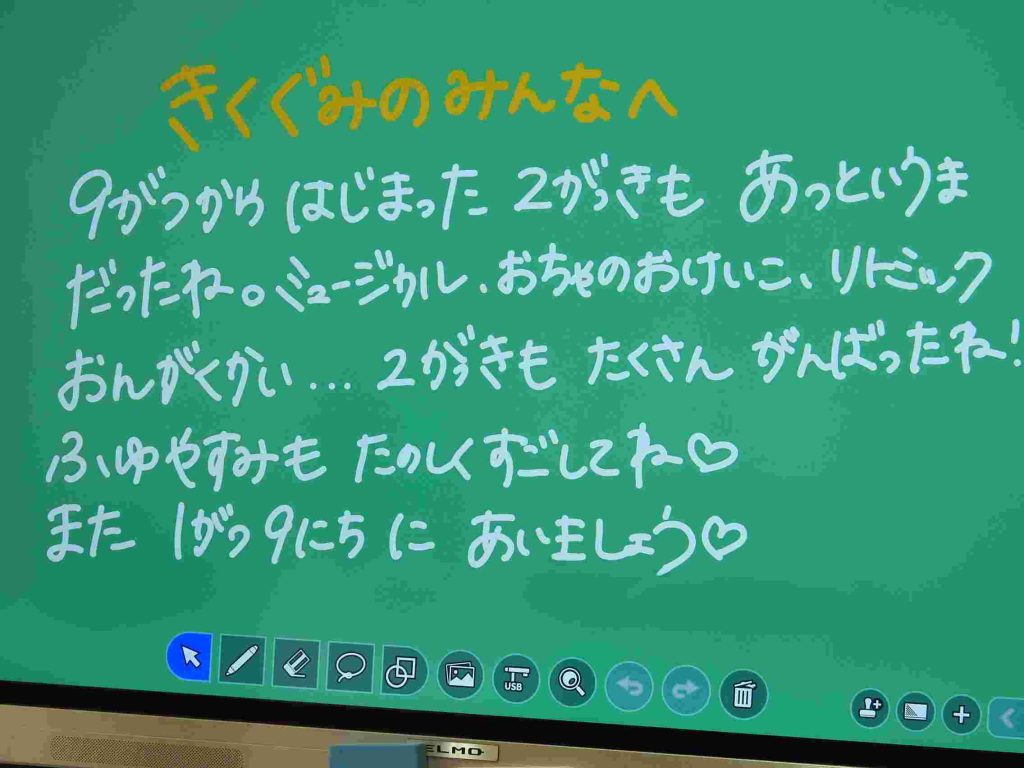 きくぐみのみんなへ
9がつから はじまった 2がっきも あっというま
だったね。ミュージカル、おちゃのおけいこ、リトミック
おんがくかい... 2がっきも たくさん がんばったね!
ふゆやすみも たのしくすごしてね♡
また 1がつ9にちに あいましょう♡
USB
ELMO